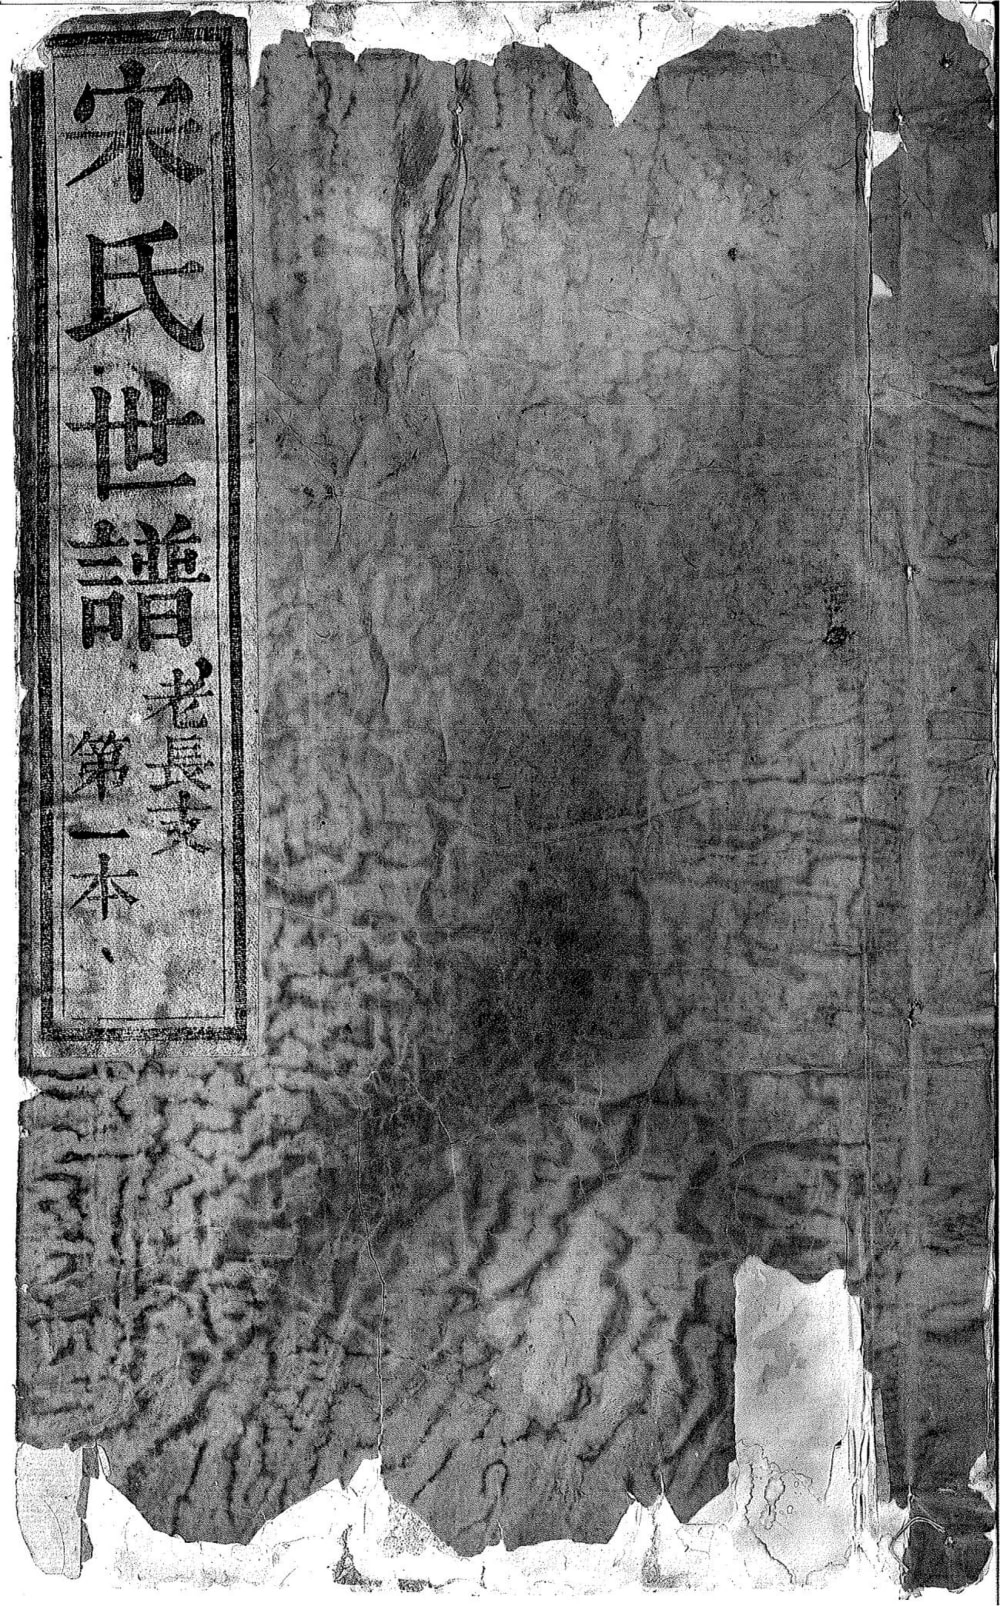 宋氏世譜
老長支
第一本、